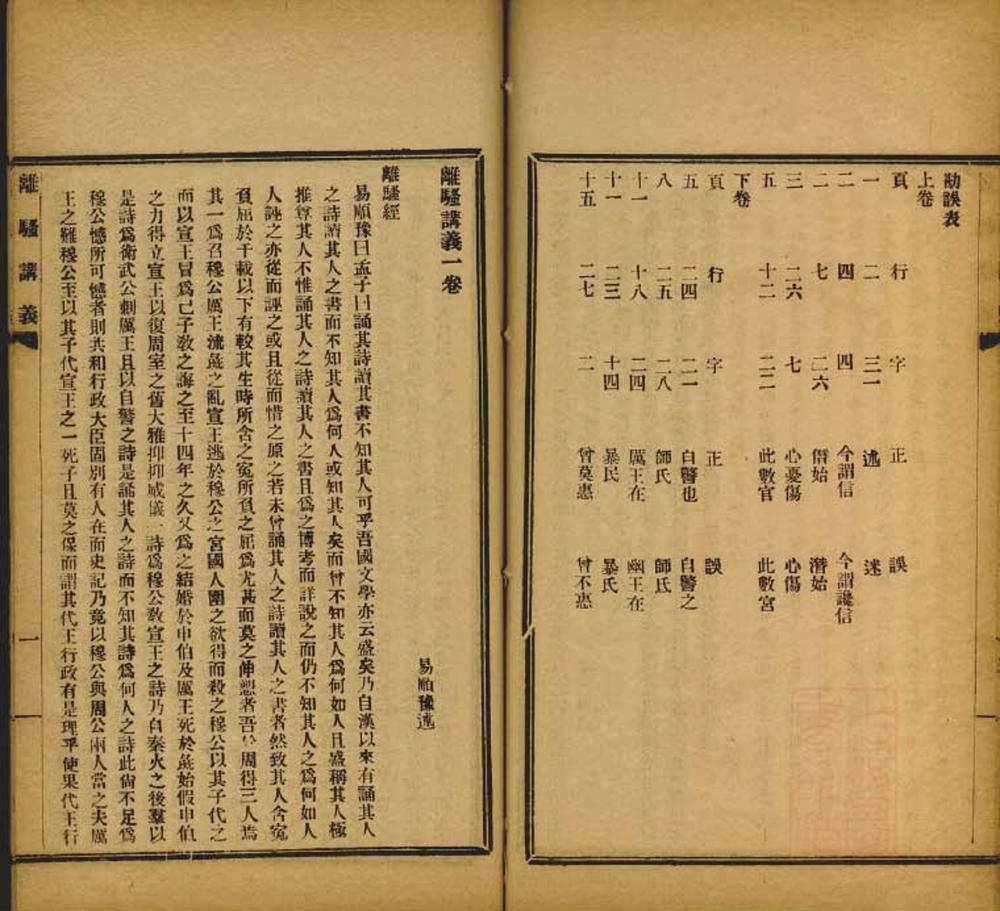 勘誤表
上卷
頁 行 字 正 誤
一 二 三一 述 迷
二 四 四 今謂信 今謂讒信
二 七 二六 僭始 潛始
三 二六 七 心憂傷 心傷
五 十二 二二 此數官 此數宮
下卷
頁 行 字 正 誤
五 二四 二一 自警也 自警之
八 二五 二八 師氏 師氐
十一 十八 二四 厲王在 幽王在
十一 二三 十四 暴民 暴氏
十五 二七 二 曾莫惠 曾不惠
離騷講義一卷
易順豫述
離騷經
易順豫曰孟子曰誦其詩讀其書不知其人可乎吾國文學亦云盛矣乃自漢以來有誦其人
之詩讀其人之書而不知其人爲何人或知其人矣而曾不知其人爲何如人且盛稱其人極
推尊其人不惟誦其人之詩讀其人之書且爲之博考而詳說之而仍不知其人之爲何如人
人誣之亦從而誣之或且從而惜之原之若未曾誦其人之詩讀其人之書者然致其人含寃
負屈於千載以下有較其生時所含之寃所負之屈爲尤甚而莫之伸愬者吾於周得三人焉
其一爲召穆公厲王流彘之亂宣王逃於穆公之宮國人圍之欲得而殺之穆公以其子代之
而以宣王冒爲己子敎之誨之至十四年之久又爲之結婚於申伯及厲王死於彘始假申伯
之力得立宣王以復周室之舊大雅抑抑威儀一詩爲穆公敎宣王之詩乃自秦火之後羣以
是詩爲衛武公刺厲王且以自警之詩是誦其人之詩而不知其詩爲何人之詩此尙不足爲
穆公憾所可憾者則共和行政大臣固別有人在而史記乃竟以穆公與周公兩人當之夫厲
王之難穆公至以其子代宣王之一死子且莫之保而謂其代王行政有是理乎使果代王行
離騷講義
一